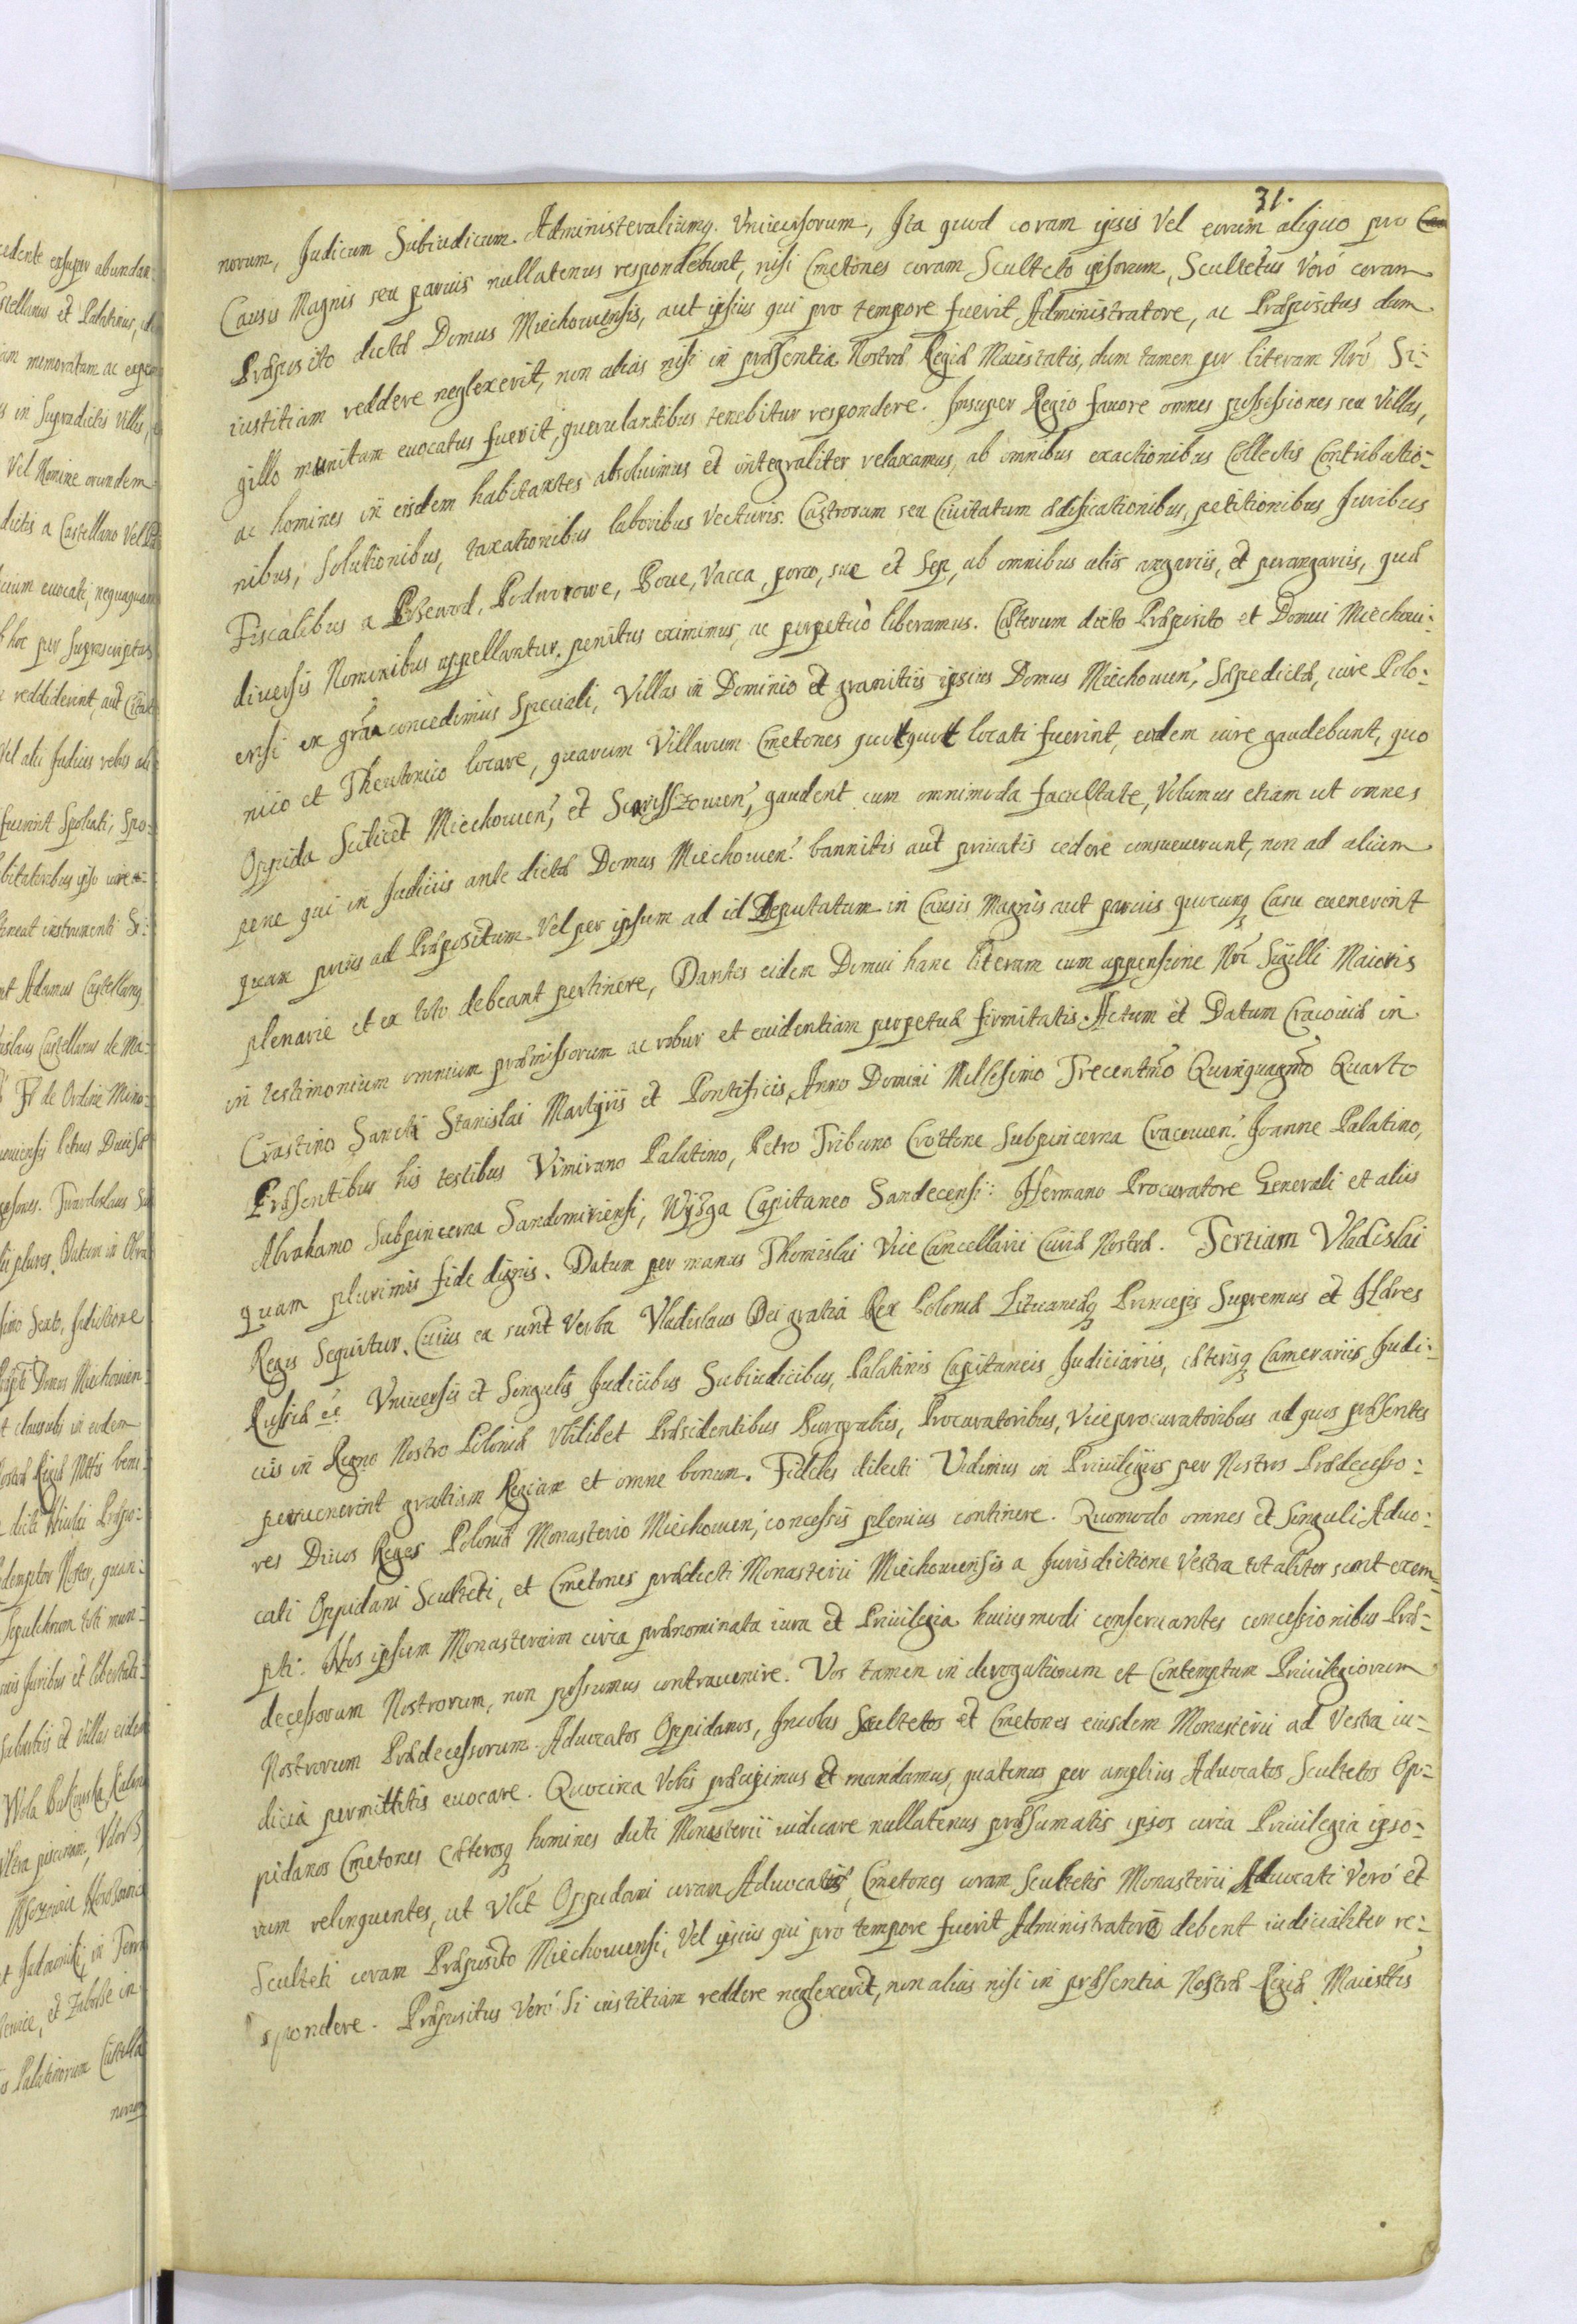 31.
norum, Judicum Subiudicum. Administeraliumq. Vniuersorum, Ita quod coram ipsis Vel eorum aliquo pro
Causis Magnis seu paruis nullatenus respondebunt, nisi Cmetones coram Sculteto ipsorum, Scultetus Veró coram
Præposito dictæ Domus Miechouensis, aut ipsius qui pro tempore fuerit Administratore, ac Præpositus dum
iustitiam reddere neglexerit, non alias nisi in præsentia Nostræ Regiæ Maiestatis, dum tamen per literam Nrõ Si:
gillo munitam euocatus fuerit, querulantibus tenebitur respondere. Insuper Regio fauore omnes possessiones seu Villas,
ac homines in eisdem habitantes absoluimus et integraliter relaxamus, ab omnibus exactionibus Collectis Contributio:
nibus, Solutionibus, taxationibus laboribus Vecturis. Castrorum seu Ciuitatum ædificationibus, petitionibus Juribus
Fiscalibus a Podworowe, Boue, Vacca, porco, sue et Sep, ab omnibus aliis angariis, et perangariis, quæ
diuersis Nominibus appellantur. penitus eximimus, ac perpetuò liberamus. Cæterum dicto Præposito et Domui Miechoui:
ensi ex grãa concedimus Speciali, Villas in Dominio et granitiis ipsius Domus Miechouien, Sæpedictæ, iure Polo:
nico et Theutonico locare, quarum Villarum Cmetones quotquot locati fuerint, eodem iure gaudebunt, quo
Oppida Scilicet Miechouien, et gaudent cum omnimoda facultate, Volumus etiam ut omnes
pene qui in Judiciis ante dictæ Domus Miechouen. bannitis aut priuatis cedere consueuerunt, non ad alium
quam prius ad Præpositum Vel per ipsum ad id Deputatum in Causis Magnis aut paruis quocunq Casu euenerint
plenarie et ex toto debeant pertinere, Dantes eidem Domui hanc literam cum appensione Nrĩ Sigilli Maioris
in testimonium omnium præmissorum ac robur et euidentiam perpetuæ firmitatis. Actum et Datum Cracouiæ in
Crastino Sancti Stanislai Martyris et Pontificis, Anno Domini Millesimo Trecentmõ Quinquagmõ Quarto
Præsentibus his testibus Vimirano Palatino, Petro Tribuno Crottone Subpincerna Cracouien. Joanne Palatino,
Abrahamo Subpincerna Sandomiriensi, Wyżga Capitaneo Sandecensi: Hermano Procuratore Generali et aliis
quam plurimis fide dignis. Datum per manus Thomislai Vice Cancellarii Curiæ Nostræ. Tertiam Vladislai
Regis Sequitur. Cuius ea sunt Verba Vladislaus Dei gratia Rex Poloniæ Lituaniæq Princeps Supremus et Hæres
Russiæ ec Vniuersis et Singulis Judicibus Subiudicibus, Palatinis Capitaneis Judiciariis, cæterisq Camerariis Judi:
ciis in Regno Nostro Poloniæ Vbilibet Præsidentibus Burgrabiis, Procuratoribus, Viceprocuratoribus ad quos præsentes
peruenerint gratiam Regiam et omne bonum. Fideles dilecti Vidimus in Priuilegiis per Nostros Prædecesso:
res Diuos Reges Poloniæ Monasterio Miechouien, concessis plenius continere. Quomodo omnes et Singuli Aduo:
cati Oppidani Sculteti, et Cmetones prædicti Monasterii Miechouiensis a Jurisdictione Vestra totaliter sunt exem:
pti. Nos ipsum Monasterium circa prænominata iura et Priuilegia huiusmodi conseruantes concessionibus Præ:
decessorum Nostrorum, non possumus contrauenire. Vos tamen in derogationem et Contemptum Priuilegiorum
Nostrorum Prædecessorum Aduocatos Oppidanos, Incolas Scultetos et Cmetones eiusdem Monasterii ad Vestra iu:
dicia permittitis euocare. Quocirca Vobis præcipimus et mandamus, quatenus per amplius Aduocatos Scultetos Op:
pidanos Cmetones Cæterosq homines dicti Monasterii iudicare nullatenus præsumatis ipsos circa Priuilegia ipso:
rum relinquentes, ut Vlt Oppidani coram Aduocatis, Cmetones coram Scultetis Monasterii Aduocati Veró et
Sculteti coram Præposito Miechouiensi, Vel ipsius qui pro tempore fuerit Administratore debent iudicialiter re:
spondere. Præpositus Veró Si iustitiam reddere neglexerit, non alias nisi in præsentia Nostræ Regiæ Maiesttis